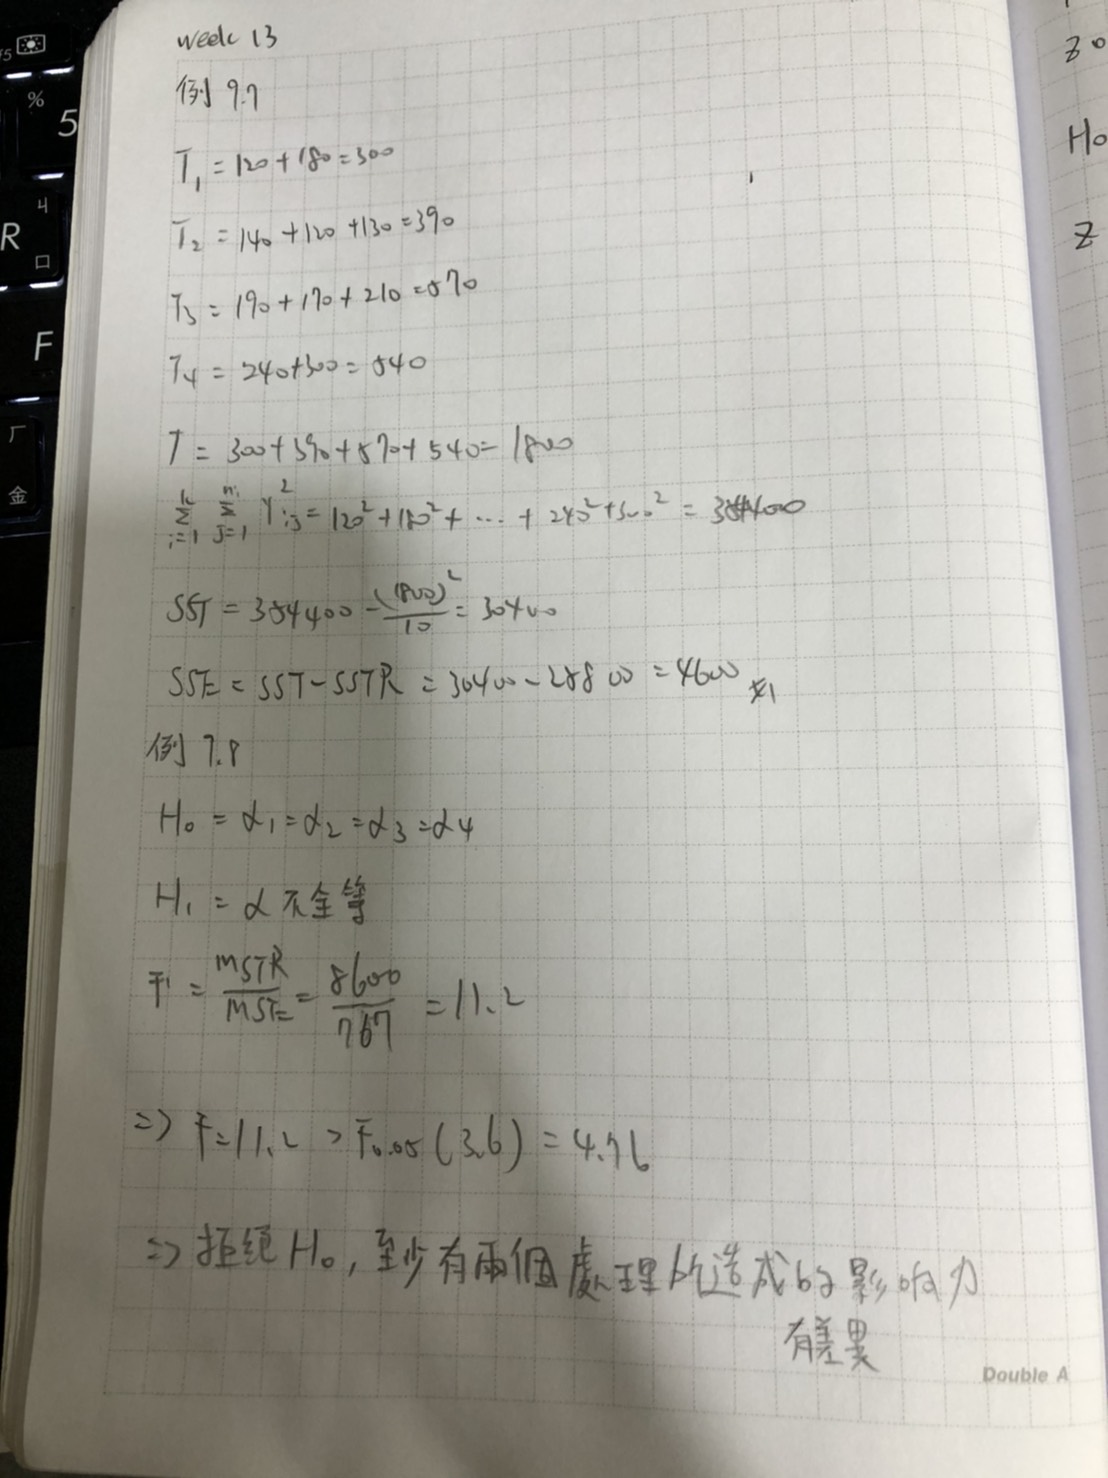 week 13
例 9.7
T₁ = 120 + 180 = 300
T₂ = 140 + 120 + 130 = 390
T₃ = 190 + 170 + 210 = 570
T₄ = 240 + 300 = 540
T = 300 + 390 + 570 + 540 = 1800
Σᵏᵢ₌₁ Σⁿⁱⱼ₌₁ Y²ᵢⱼ = 120² + 180² + ... + 240² + 300² = 354400
SST = 354400 - (1800)²/10 = 30400
SSE = SST - SSTR = 30400 - 25800 = 4600
例 7.8
H₀ = α₁ = α₂ = α₃ = α4
H₁ = α 不全等
F = MSTR/MSE = 8600/767 = 11.2
=> F = 11.2 > F₀.₀₅ (3,6) = 4.76
=> 拒絕 H₀, 至少有兩個處理所造成的影响力
有差異
Double A
20
H₀
Z
%
5
R
ㄐ
口
F
ㄏ
金